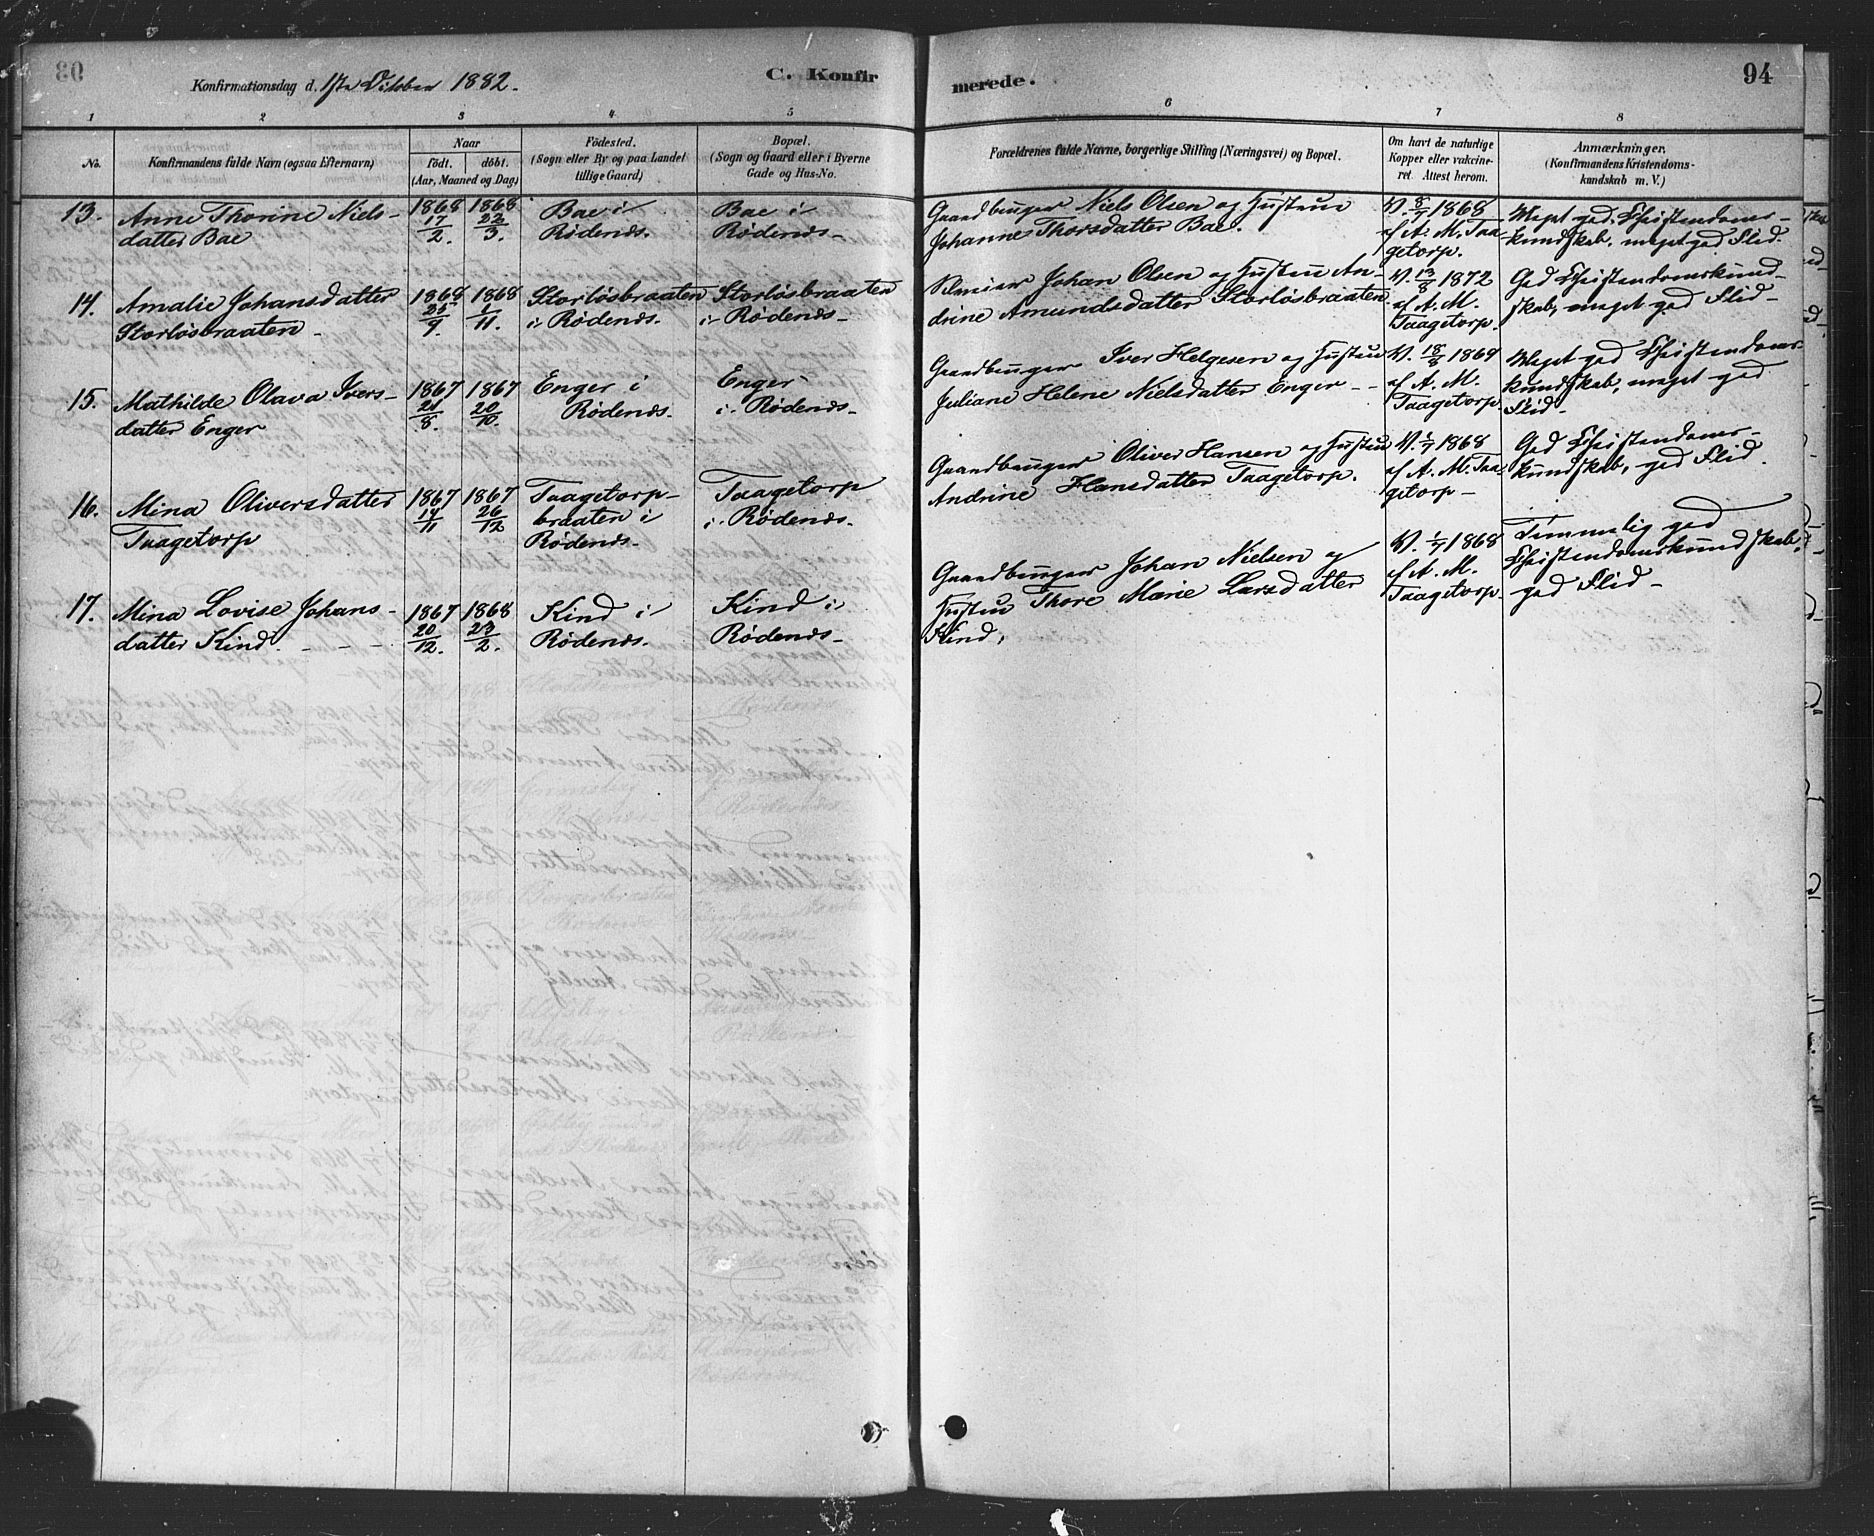 Konfirmationsdag d. 1ste Oktober 1882.
C. Konfir
merede.
94
1 2 3 4 5 6 7 8
No.
Konfirmandens fulde Navn (ogsaa Efternavn)
Naar
født. døbt.
(Aar, Maaned og Dag)
Fødested.
(Sogn eller By og paa Landet
tillige Gaard)
Bopæl.
(Sogn og Gaard eller i Byerne
Gade og Hus-No.
Forældrenes fulde Navne, borgerlige Stilling (Næringsvei) og Bopæl.
Om havt de naturlige
Kopper eller vakcine-
ret. Attest herom.
Anmærkninger.
(Konfirmandens Kristendoms-
kundskab m. V.)
13. Anne Thorine Niels-
datter Bae
1868 17/2.
1868 22/3.
Bae i
Rødenæs.
Bae i
Rødenæs
Gaardbruger Niels Olsen og Hustru
Johanne Thorsdatter Bae.
V. 8/7 1868
af A. M. Taa
getorp.
Meget god Christendoms-
kundskab, meget god Flid.
14. Amalie Johansdatter
Storløsbraaten
1868 25/9.
1868 1/11.
Storløsbraaten
i Rødenæs.
Storløsbraaten
i Rødenæs
Johan Olsen og Hustru An-
drine Amundsdatter Storløsbraaten
V. 13/8 1872
af A. M.
Taagetorp.
God Christendomskund-
skab, meget god Flid
15. Mathilde Olava Ivers-
datter Enger
1867 26/8.
1867 20/10.
Enger i
Rødenæs.
Enger
i Rødenæs
Gaardbruger Iver Helgesen og Hustru
Juliane Helene Nielsdatter Enger
V. 18/8 1869
af A. M.
Taagetorp.
Meget god Christendoms-
kundskab, meget god
Flid
16. Mina Oliversdatter
Taagetorp
1867 14/11
1867 26/12
Taagetorp-
braaten i
Rødenæs
Taagetorp
i Rødenæs.
Gaardbruger Oliver Hansen og Hustru
Andrine Hansdatter Taagetorp.
V. 1/7 1868
af A. M. Taa
getorp
God Christendoms-
kundskab, god Flid.
17. Mina Lovise Johans-
datter Kind.
1867 20/12.
1868 23/2.
Kind i
Rødenæs.
Kind i
Rødenæs
Gaardbruger Johan Nielsen og
Hustru Thore Marie Larsdatter
Kind.
V. 1/7 1868
af A. M.
Taagetorp.
Temmelig god
Christendomskundskab,
god Flid